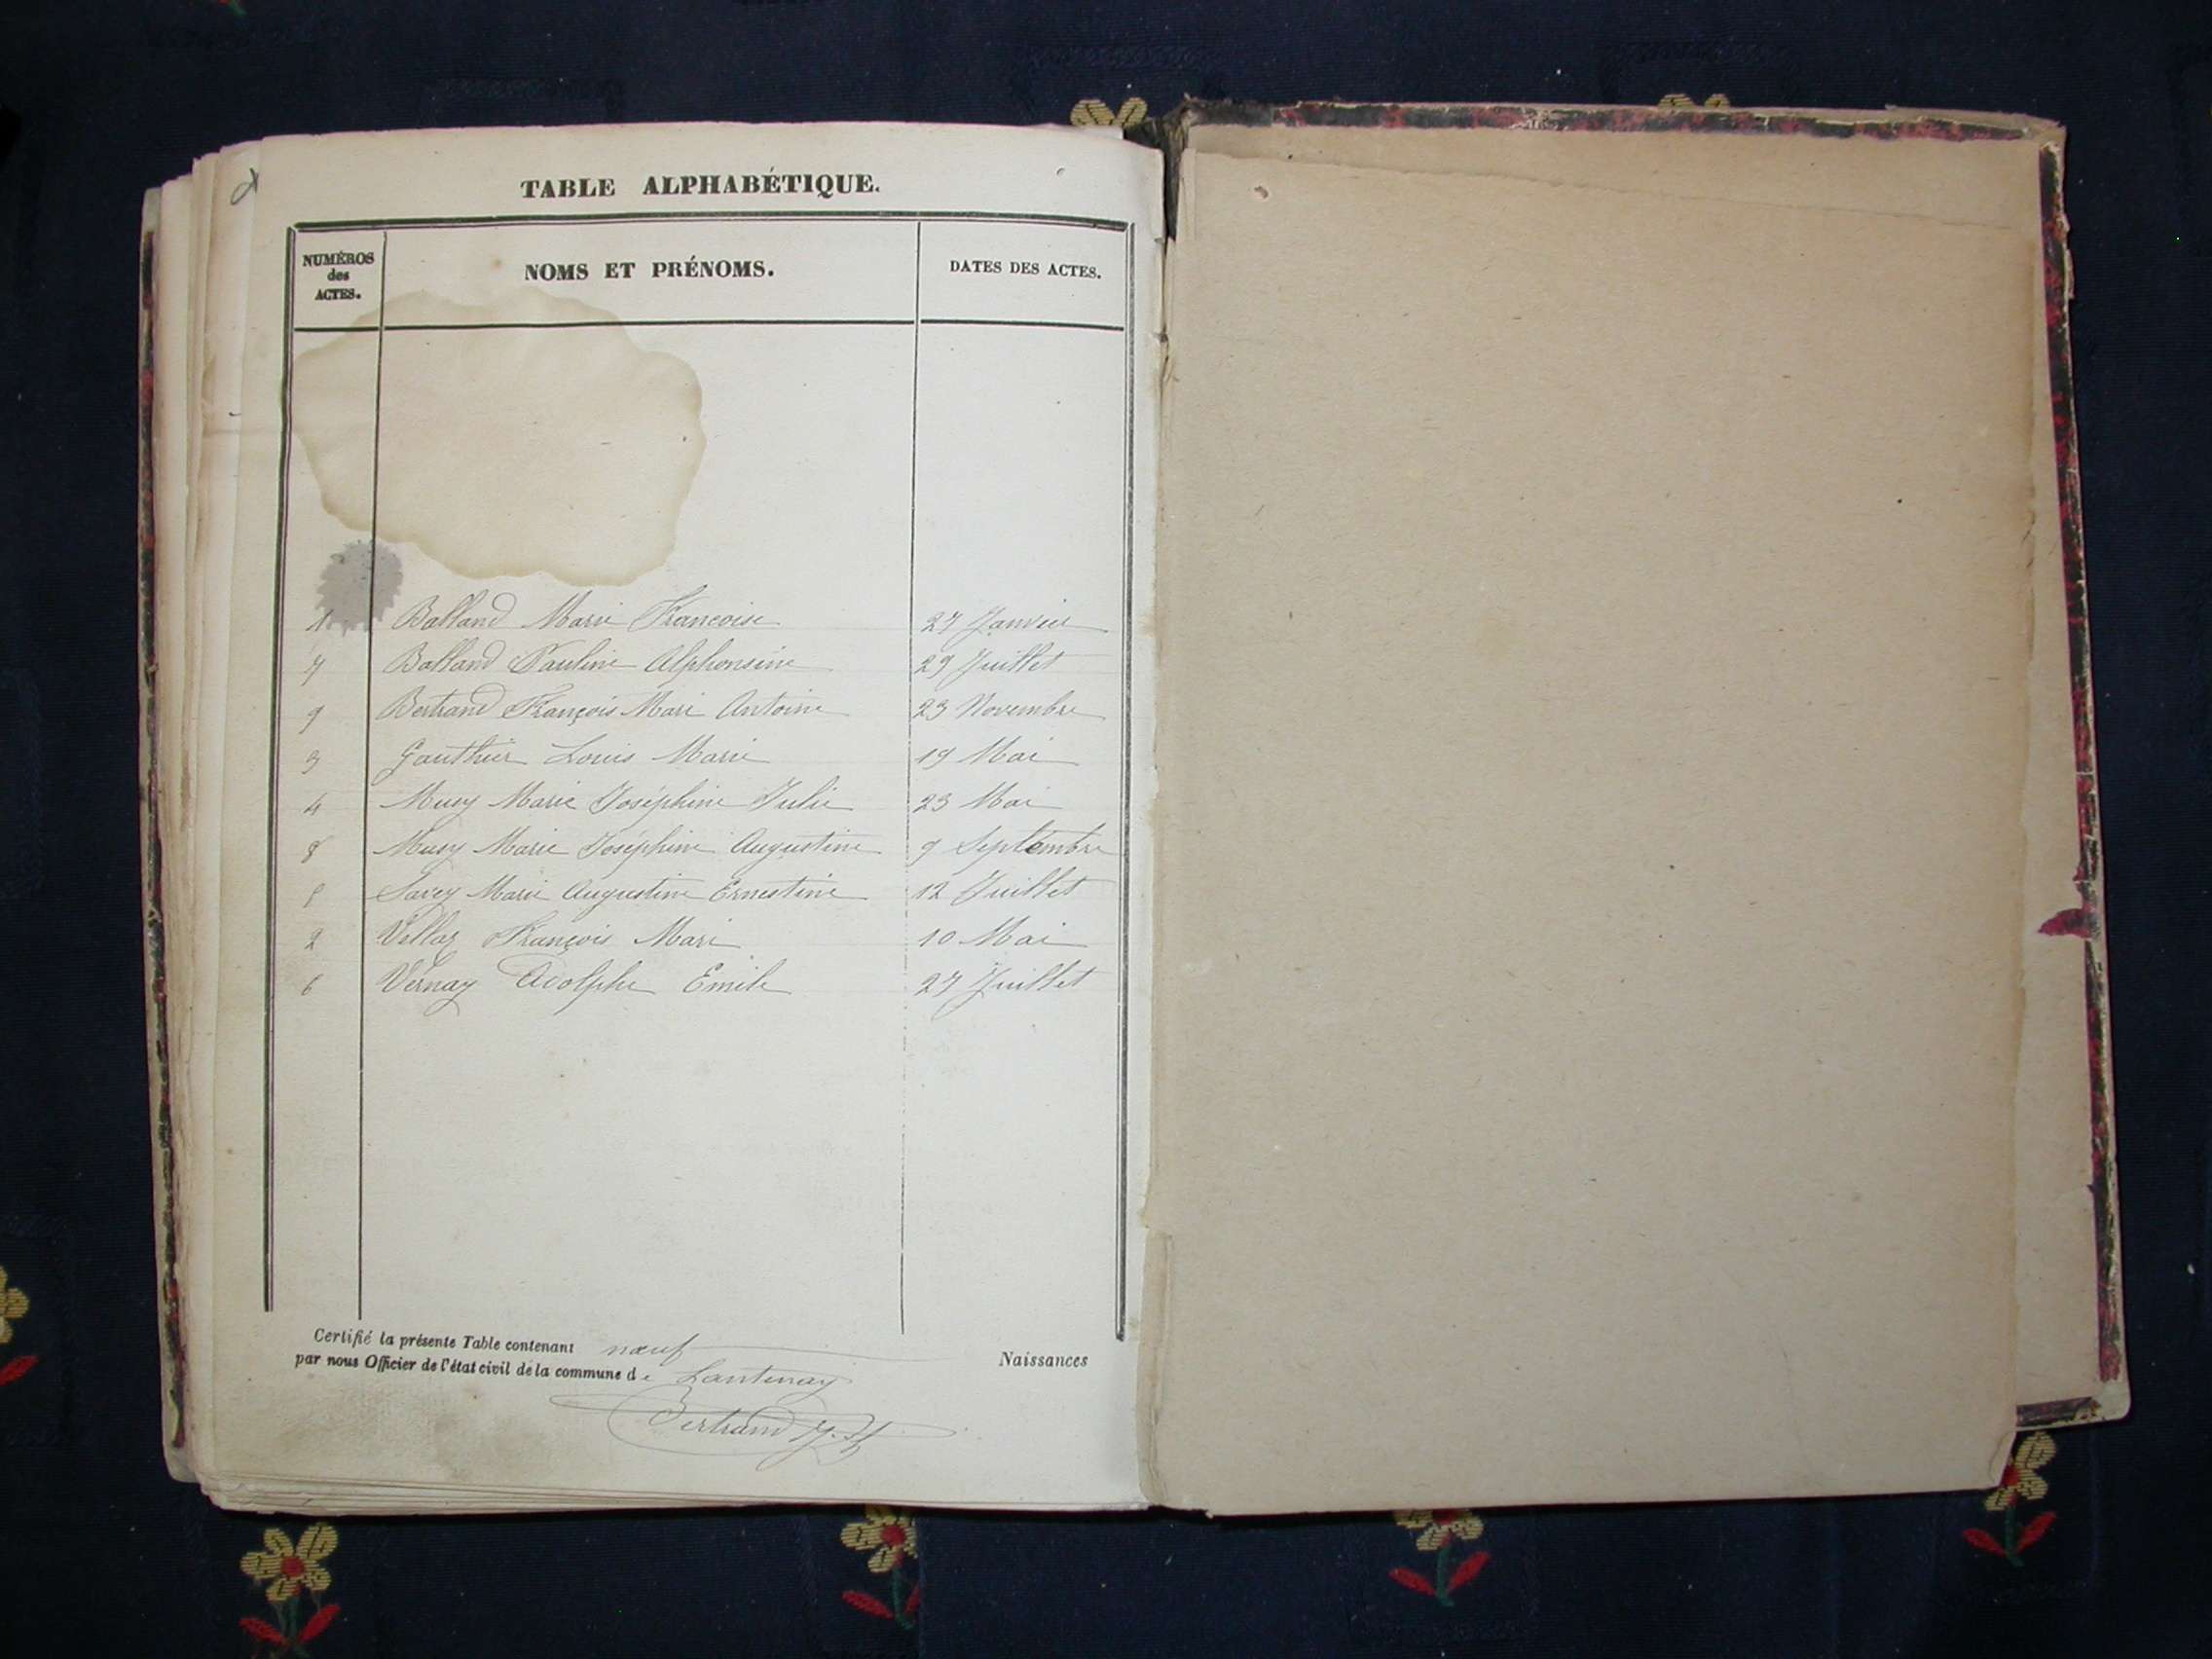 TABLE ALPHABÉTIQUE.
NUMÉROS des ACTES.
NOMS ET PRÉNOMS.
DATES DES ACTES.
1 Balland Marie Francoise 27 Janvier
7 Balland Pauline Alphonsine 29 Juillet
9 Bertrand François Mari Antoine 23 Novembre
3 Gauthier Louis Marie 19 Mai
4 Musy Marie Joséphine Julie 23 Mai
8 Musy Marie Joséphine Augustine 9 Septembre
5 Savey Marie Augustine Ernestine 12 Juillet
2 Villaz François Mari 10 Mai
6 Vernay Adolphe Emile 27 Juillet
Certifié la présente Table contenant nœuf Naissances
par nous Officier de l'état civil de la commune de Lantenay
Bertrand